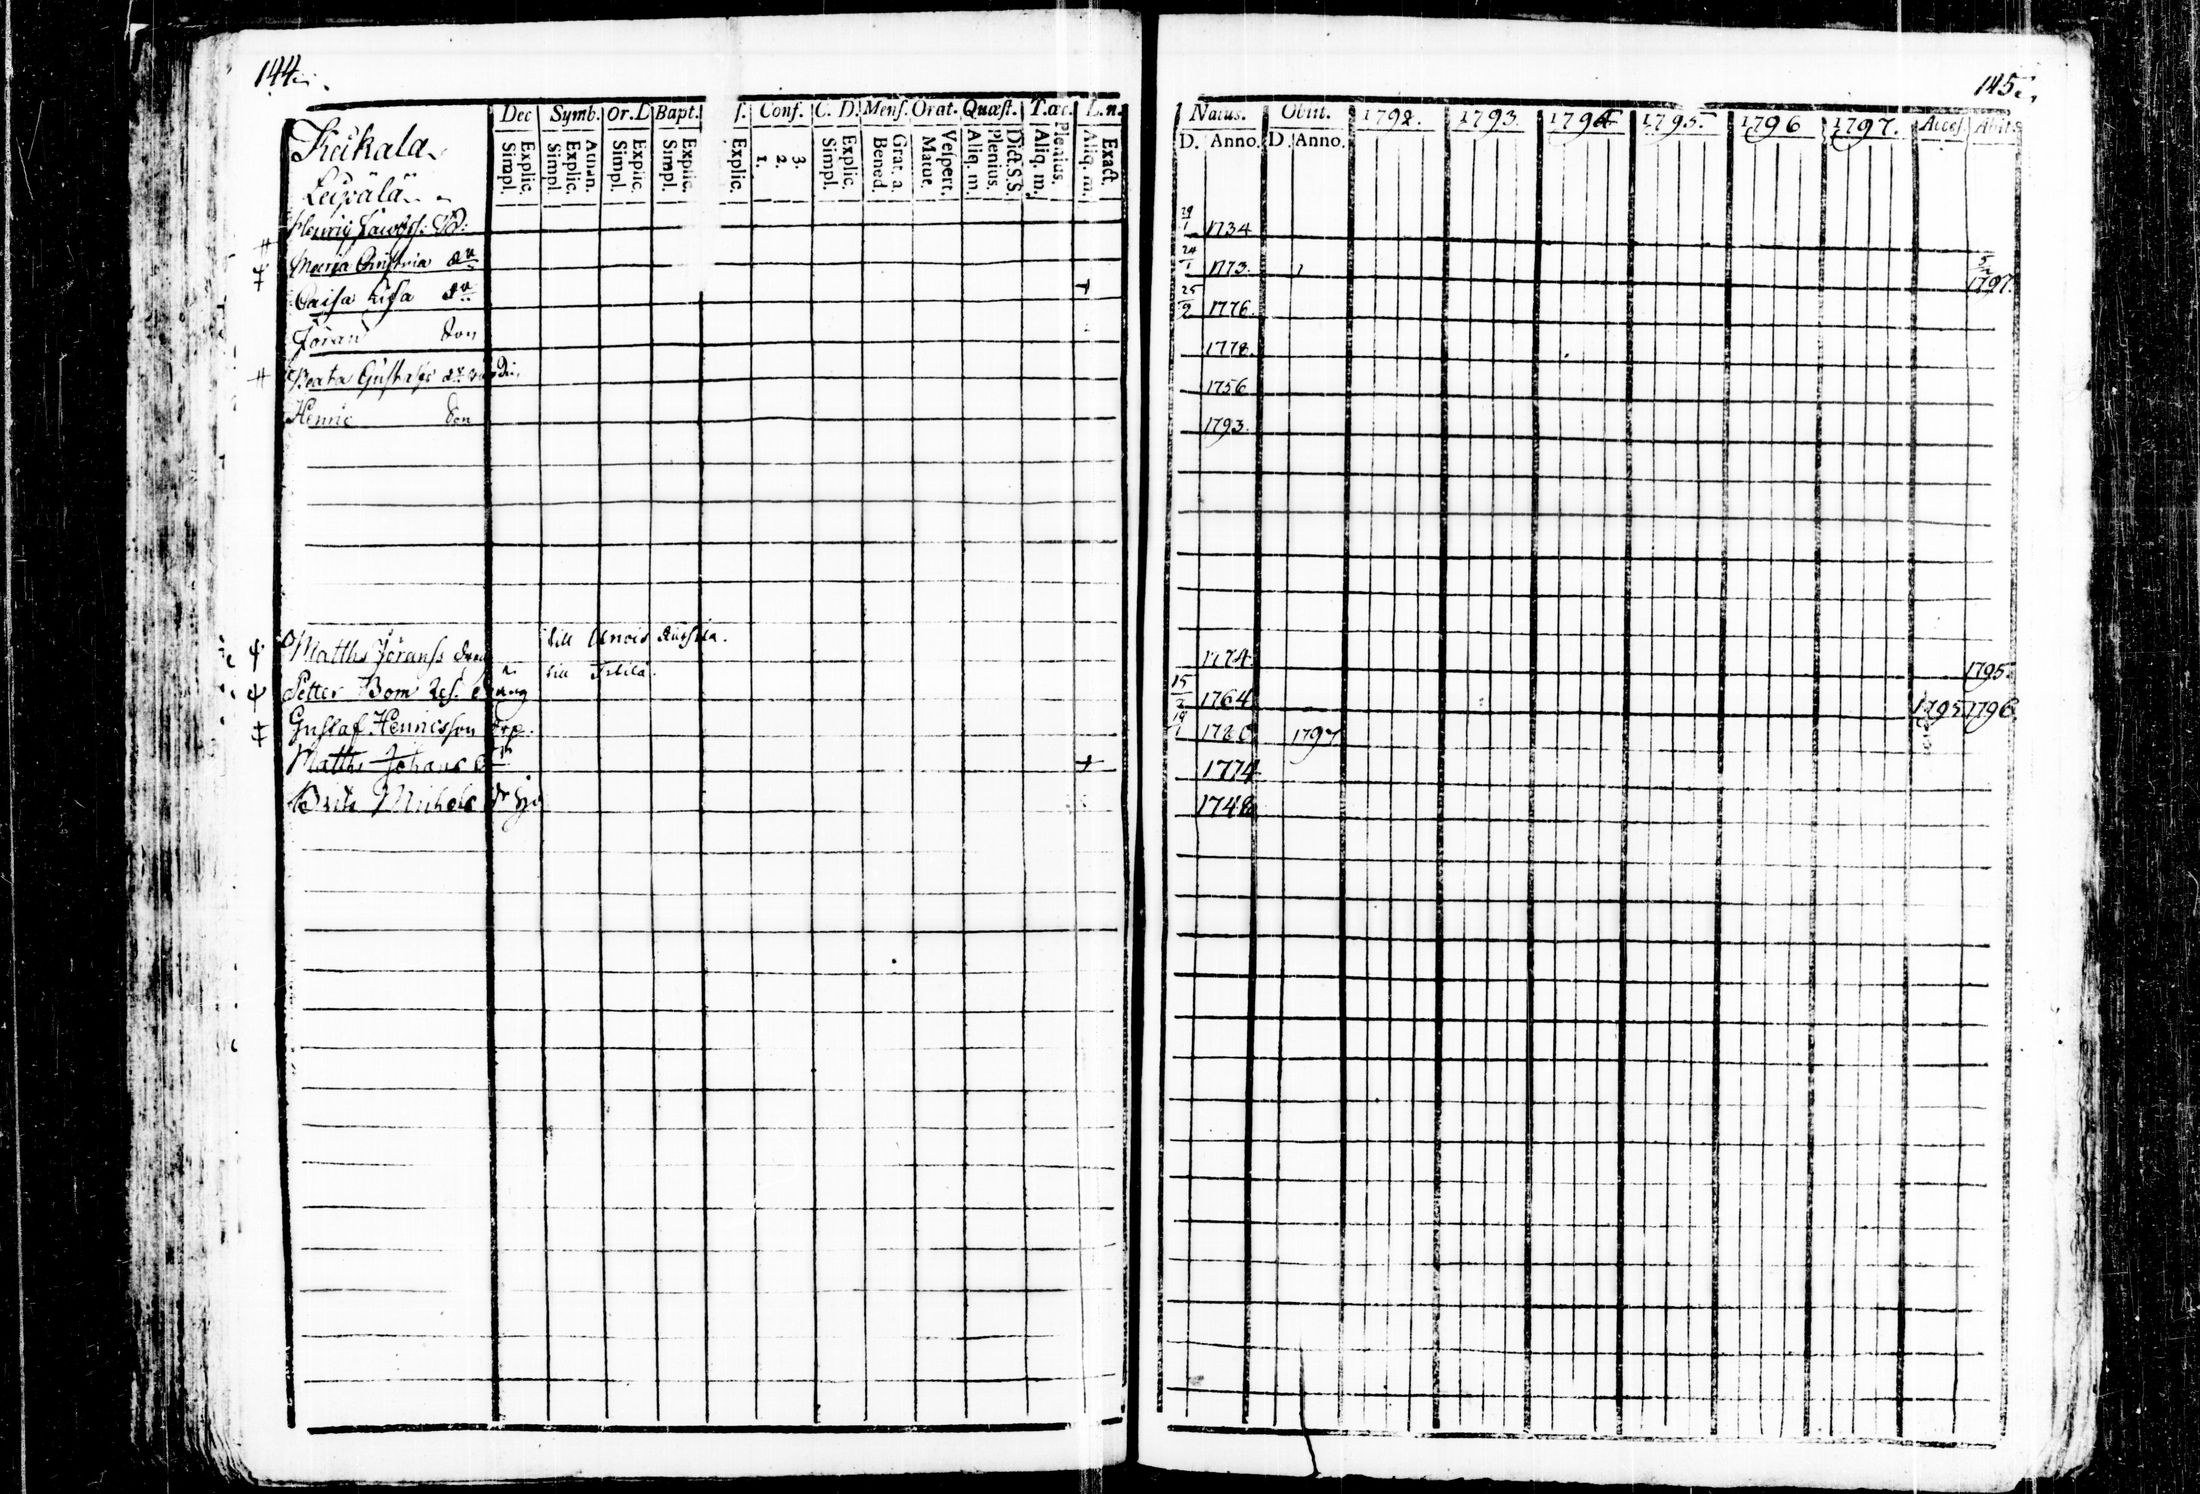 144.
Dec Symb. Or. D Bapt. ſ. Conf. C. D. Menſ. Orat. Quæſt. T. œc. L. n.
Explic. Simpl. Athan. Explic. Simpl. Explic. Simpl. Explic. Simpl. Explic. 3. 2. 1. Explic. Simpl. Grat. a. Bened. Veſpert. Matut. Dict. S.S. Plenius. Aliq. m. Plenius. Aliq. m. Exact. Aliq. m.
Kuikala
Leipälä
Henric
Maria Christina dr
Caisa Lisa dr
Jöran Son
Beata Gustafs dr
Henric Son
till
Matths Jöranss
till
Petter Bom
Gustaf Henricsson
Matths Johans
Brita Michels dr
145.
Natus. Obiit. 1792. 1793 1794 1795. 1796 1797. Acceſ. Abiit.
D. Anno. D Anno.
29/1 1734
24/1 1773. 5/2 1797.
25/9 1776.
1778.
1756
1793.
1774. 1795.
15/2 1764 1795 1796
19/1 1797
1774
1748